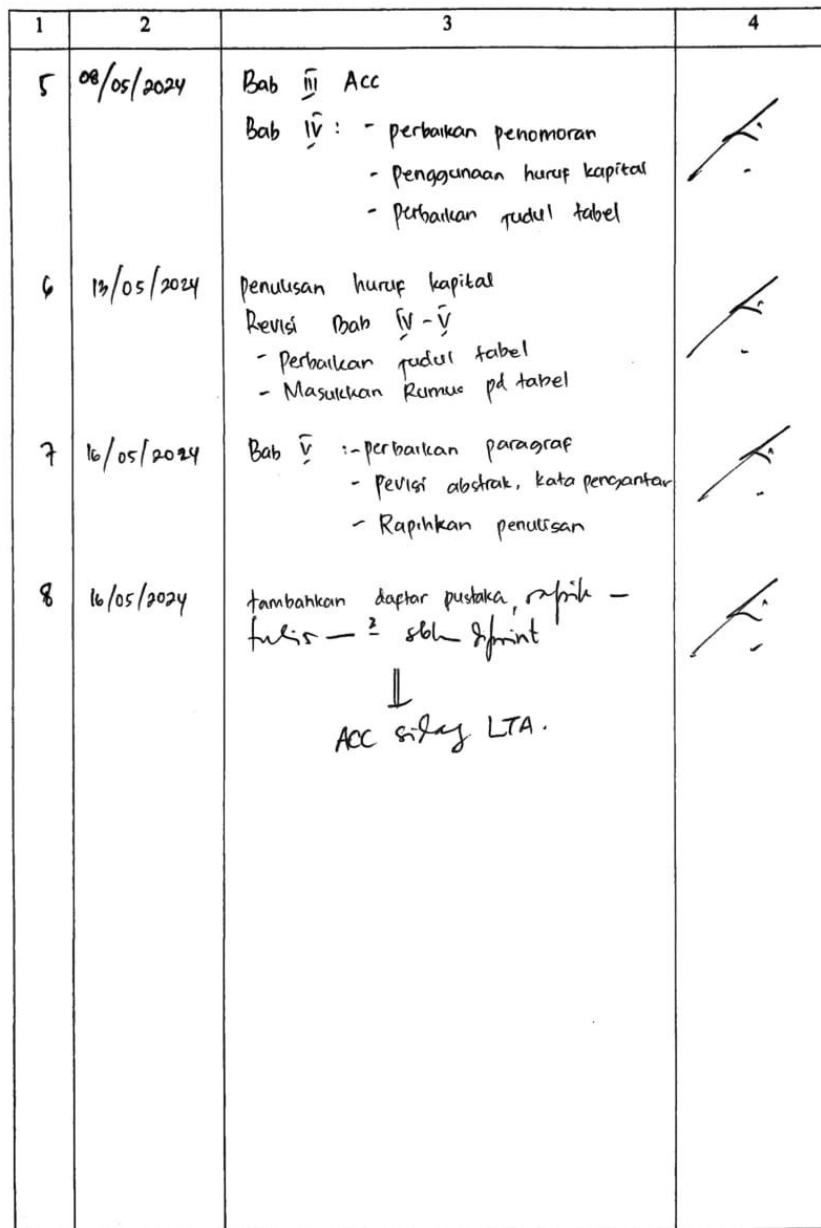 1 2 3 4
5 08/05/2024 Bab III Acc
Bab IV : - perbaikan penomoran
- Penggunaan huruf kapital
- Perbaikan judul tabel
6 13/05/2024 penulisan huruf kapital
Revisi Bab IV - V
- Perbaikan judul tabel
- Masukkan Rumus pd tabel
7 16/05/2024 Bab V :- perbaikan paragraf
- Revisi abstrak, kata pengantar
- Rapihkan penulisan
8 16/05/2024 tambahkan daftar pustaka,
ACC sidang LTA.